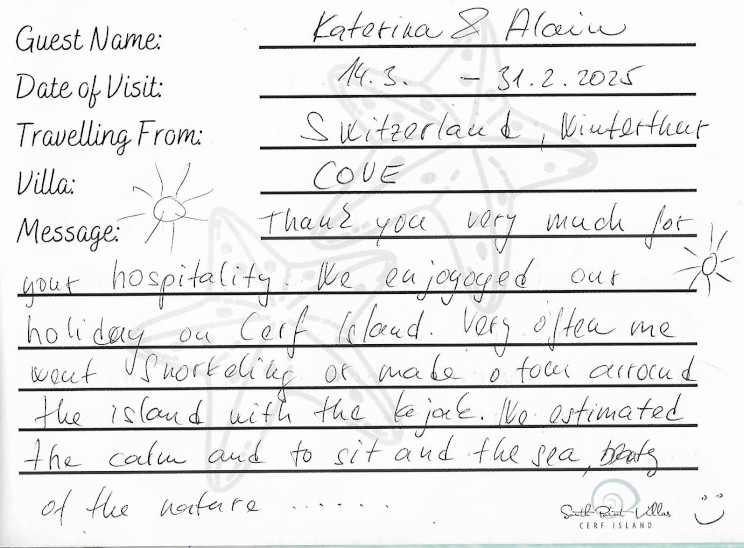 Guest Name: Katerina & Alain
Date of Visit: 14.3. - 31.2.2025
Travelling From: Switzerland, Winterthur
Villa: COVE
Message: Thank you very much for
your hospitality. We enjoyoged our
holiday on Cerf Island. Very often we
went snorkeling or made a tour arround
the island with the kajak. We estimated
the calm and to sit and the sea, beauty
of the nature ......
South Point Villas
CERF ISLAND